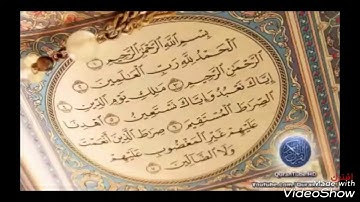 بِسْمِ اللَّهِ الرَّحْمَٰنِ الرَّحِيمِ ١
الْحَمْدُ لِلَّهِ رَبِّ الْعَالَمِينَ ٢
الرَّحْمَٰنِ الرَّحِيمِ ٣ مَٰلِكِ يَوْمِ الدِّينِ ٤
إِيَّاكَ نَعْبُدُ وَإِيَّاكَ نَسْتَعِينُ ٥ اهْدِنَا
الصِّرَٰطَ الْمُسْتَقِيمَ ٦ صِرَٰطَ الَّذِينَ أَنْعَمْتَ
عَلَيْهِمْ غَيْرِ الْمَغْضُوبِ عَلَيْهِمْ
وَلَا الضَّالِّينَ ٧
Made with
VideoShow